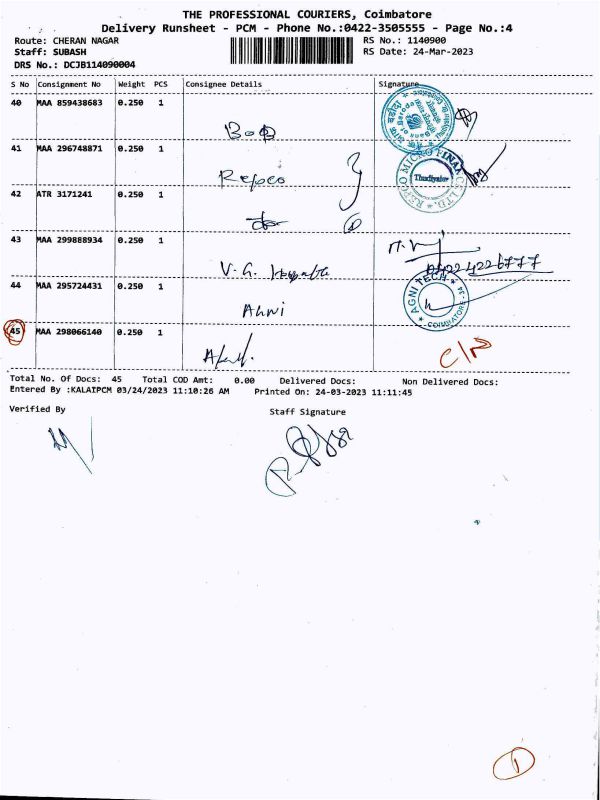 THE PROFESSIONAL COURIERS, Coimbatore
Delivery Runsheet - PCM - Phone No.:0422-3505555 - Page No.:4
Route: CHERAN NAGAR RS No.: 1140900
Staff: SUBASH RS Date: 24-Mar-2023
DRS No.: DCJB114090004
S No Consignment No Weight PCS Consignee Details Signature
40 MAA 859438683 0.250 1
BOB
41 MAA 296748871 0.250 1
Repco
REPCO MICRO FINANCE LTD.
42 ATR 3171241 0.250 1
43 MAA 299888934 0.250 1
V. G.
0422 4226777
44 MAA 295724431 0.250 1
AGNI TECH
COIMBATORE
45 MAA 298066140 0.250 1
Total No. Of Docs: 45 Total COD Amt: 0.00 Delivered Docs: Non Delivered Docs:
Entered By :KALAIPCM 03/24/2023 11:10:26 AM Printed On: 24-03-2023 11:11:45
Verified By Staff Signature
1